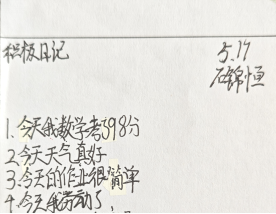 积极日记
5.17
石锦恒
1.今天我数学考了98分
2.今天天气真好
3.今天的作业很简单
4.今天我劳动了